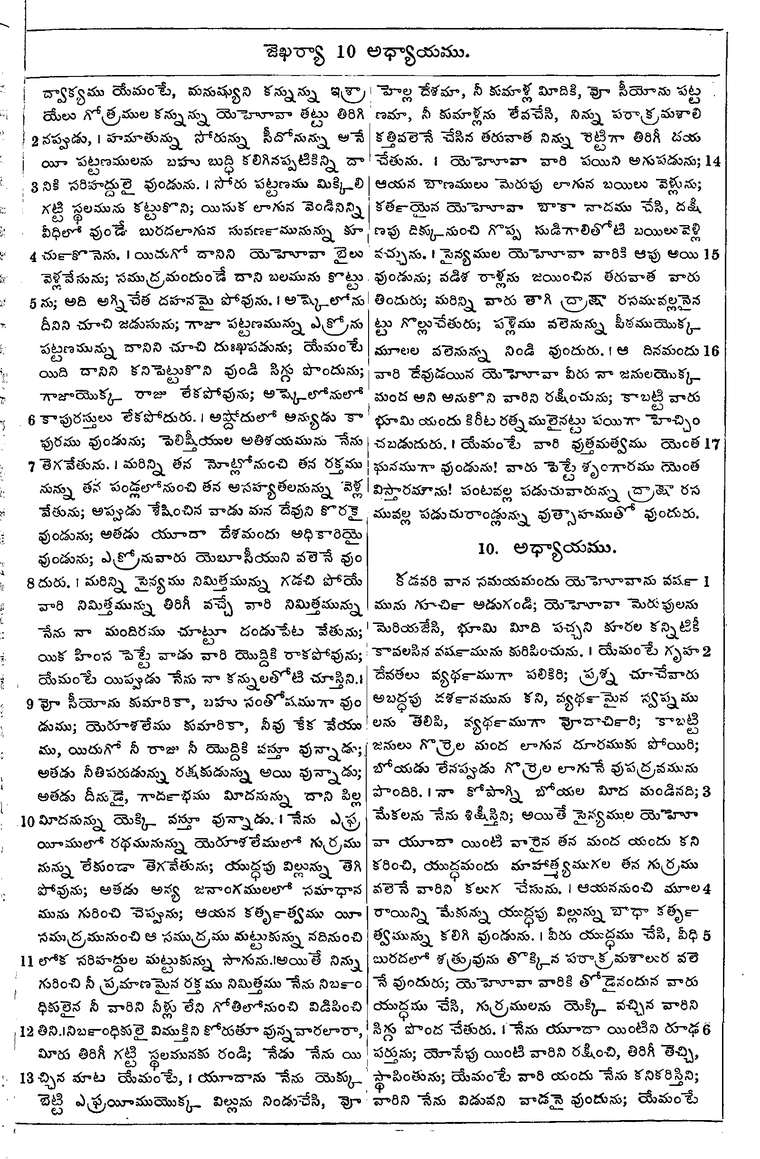 జెఖర్యా 10 అధ్యాయము.
ద్వాక్యము యేమంటే, మనుష్యుని కన్నున్ను ఇశ్రా
యేలు గోత్రముల కన్నున్ను యెహోవా తట్టు తిరిగి
2 నప్పుడు, । హమాతున్ను సోరున్ను సీదోనున్ను అనే
యీ పట్టణములను బహు బుద్ధి కలిగినప్పటికిన్ని దా
3 నికి సరిహద్దులై వుండును. । సోరు పట్టణము మిక్కిలి
గట్టి స్థలమును కట్టుకొని; యిసుక లాగున వెండినిన్ని
వీధిలో వుండే బురదలాగున సువర్ణమునున్ను కూ
4 చుకొనెను. । యిదుగో దానిని యెహోవా బైలు
వెళ్లవేసును; సముద్రమందుండే దాని బలమును కొట్టు
5 ను; అది అగ్నిచేత దహనమై పోవును. । అష్కెలోను
దీనిని చూచి జడుసును; గాజా పట్టణమున్ను ఎక్రోను
పట్టణమున్ను దానిని చూచి దుఃఖపడును; యేమంటే
యిది దానిని కనిపెట్టుకొని వుండి సిగ్గు పొందును;
గాజాయొక్క రాజు లేకపోవును; అష్కెలోనులో
6 కాపురస్తులు లేకపోదురు. । అష్డోదులో అన్యుడు కా
పురము వుండును; పెలిష్తీయుల అతిశయమును నేను
7 తెగవేతును. । మరిన్ని తన నోట్లోనుంచి తన రక్తము
నున్ను తన పండ్లలోనుంచి తన అసహ్యతలనున్ను వెళ్ల
వేతును; అప్పుడు శేషించిన వాడు మన దేవుని కొరకై
వుండును; అతడు యూదా దేశమందు అధికారియై
వుండును; ఎక్రోనువారు యెబూసీయుని వలెనే వుం
8 దురు. । మరిన్ని సైన్యము నిమిత్తమున్ను గడచి పోయే
వారి నిమిత్తమున్ను తిరిగీ వచ్చే వారి నిమిత్తమున్ను
నేను నా మందిరము చూట్టూ దండుపేట వేతును;
యిక హింస పెట్టే వాడు వారి యొద్దికి రాకపోవును;
యేమంటే యిప్పుడు నేను నా కన్నులతోటి చూస్తిని.।
9 హో సీయోను కుమారికా, బహు సంతోషముగా వుం
డుము; యెరూషలేము కుమారికా, నీవు కేక వేయు
ము, యిదుగో నీ రాజు నీ యొద్దికి వస్తూ వున్నాడు;
అతడు నీతిపరుడున్ను రక్షకుడున్ను అయి వున్నాడు;
అతడు దీనుడై, గార్దభము మీదనున్ను దాని పిల్ల
10 మీదనున్ను యెక్కి వస్తూ వున్నాడు. । నేను ఎఫ్ర
యీములో రథమునున్ను యెరూషలేములో గుర్రము
నున్ను లేకుండా తెగవేతును; యుద్ధపు విల్లున్ను తెగి
పోవును; అతడు అన్య జనాంగములలో సమాధాన
మును గురించి చెప్పును; ఆయన కర్తృత్వము యీ
సముద్రమునుంచి ఆ సముద్రము మట్టుకున్ను నదినుంచి
11 లోక సరిహద్దుల మట్టుకున్ను సాగును.।అయితే నిన్ను
గురించి నీ ప్రమాణమైన రక్తము నిమిత్తము నేను నిర్బం
ధికులైన నీ వారిని నీళ్లు లేని గోతిలోనుంచి విడిపించి
12 తిని.।నిర్బంధికులై విముక్తిని కోరుతూ వున్నవారలారా,
మీరు తిరిగీ గట్టి స్థలమునకు రండి; నేడు నేను యి
13 చ్చిన మాట యేమంటే, । యూదాను నేను యెక్కు
బెట్టి ఎఫ్రయీముయొక్క విల్లును నిండుచేసి, హో
హెల్ల దేశమా, నీ కుమాళ్ల మీదికి, హో సీయోను పట్ట
ణమా, నీ కుమాళ్లను లేవచేసి, నిన్ను పరాక్రమశాలి
కత్తివలెనే చేసిన తరువాత నిన్ను రెట్టిగా తిరిగీ దయ
చేతును. । యెహోవా వారి పయిని అగుపడును; 14
ఆయన బాణములు మెరుపు లాగున బయిలు వెళ్లును;
కర్తయైన యెహోవా బాకా నాదము చేసి, దక్షి
ణపు దిక్కునుంచి గొప్ప సుడిగాలితోటి బయిలువెళ్లి
వచ్చును. । సైన్యముల యెహోవా వారికి ఆపు అయి 15
వుండును; వడిశ రాళ్లను జయించిన తరువాత వారు
తిందురు; మరిన్ని వారు తాగి ద్రాక్షా రసమువల్లనైన
ట్టు గొల్లుచేతురు; పళ్లెము వలెనున్ను పీఠముయొక్క
మూలల వలెనున్ను నిండి వుందురు. । ఆ దినమందు 16
వారి దేవుడయిన యెహోవా వీరు నా జనులయొక్క
మంద అని అనుకొని వారిని రక్షించును; కాబట్టి వారు
భూమి యందు కిరీట రత్నములైనట్టు పయిగా హెచ్చిం
చబడుదురు. । యేమంటే వారి వుత్తమత్వము యెంత 17
ఘనముగా వుండును! వారు పెట్టే శృంగారము యెంత
విస్తారమాను! పంటవల్ల పడుచువారున్ను ద్రాక్షా రస
మువల్ల పడుచురాండ్లున్ను వుత్సాహముతో వుందురు.
10. అధ్యాయము.
కడవరి వాన సమయమందు యెహోవాను వర్ష 1
మును గూర్చి అడుగండి; యెహోవా మెరుపులను
మెరియచేసి, భూమి మీది పచ్చని కూరల కన్నిటికీ
కావలసిన వర్షమును కురిపించును. । యేమంటే గృహ 2
దేవతలు వ్యర్థముగా పలికిరి; ప్రశ్న చూచేవారు
అబద్ధపు దర్శనమును కని, వ్యర్థమైన స్వప్నము
లను తెలిపి, వ్యర్థముగా వోదార్చిరి; కాబట్టి
జనులు గొర్రెల మంద లాగున దూరముకు పోయిరి;
బోయడు లేనప్పుడు గొర్రెల లాగునే వుపద్రవమును
పొందిరి. । నా కోపాగ్ని బోయల మీద మండినది; 3
మేకలను నేను శిక్షిస్తిని; అయితే సైన్యముల యెహో
వా యూదా యింటి వారైన తన మంద యందు కని
కరించి, యుద్ధమందు మాహాత్మ్యముగల తన గుర్రము
వలెనే వారిని కలుగ చేసును. । ఆయననుంచి మూల 4
రాయిన్ని మేకున్ను యుద్ధపు విల్లున్ను బాధా కర్తృ
త్వమున్ను కలిగి వుండును. । వీరు యుద్ధము చేసి, వీధి 5
బురదలో శత్రువును తొక్కిన పరాక్రమశాలుర వలె
నే వుందురు; యెహోవా వారికి తోడైనందున వారు
యుద్ధము చేసి, గుర్రములను యెక్కి వచ్చిన వారిని
సిగ్గు పొంద చేతురు. । నేను యూదా యింటిని రూఢ 6
పర్తును; యోసేపు యింటి వారిని రక్షించి, తిరిగీ తెచ్చి,
స్థాపింతును; యేమంటే వారి యందు నేను కనికరిస్తిని;
వారిని నేను విడువని వాడనై వుందును; యేమంటే